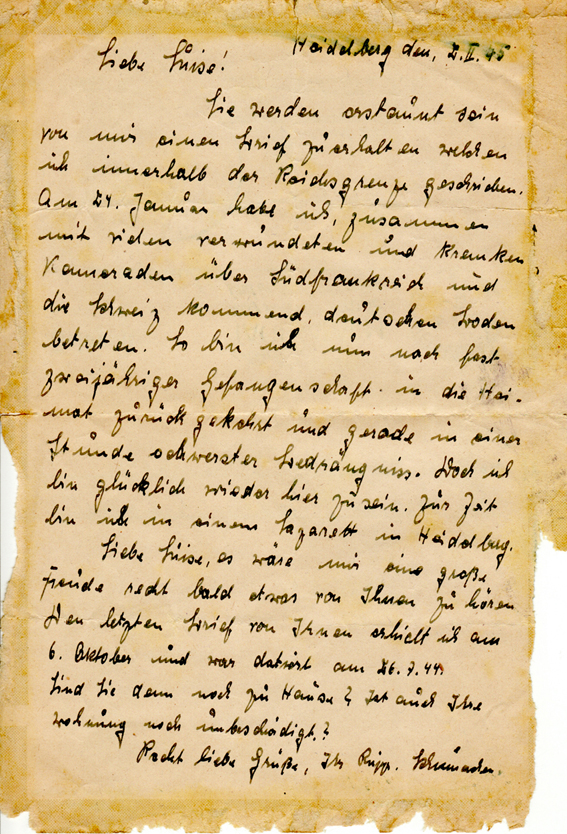 Heidelberg den, 2.II.45
Liebe Luise!
Sie werden erstaunt sein
von mir einen Brief zu erhalten welchen
ich innerhalb der Reichsgrenze geschrieben.
Am 24. Januar habe ich, zusammen
mit vielen verwundeten und kranken
Kameraden über Südfrankreich und
die Schweiz kommend, deutschen Boden
betreten. So bin ich nun nach fast
zweijähriger Gefangenschaft in die Hei-
mat zurückgekehrt und gerade in einer
Stunde schwerster Bedrängniss. Doch ich
bin glücklich wieder hier zu sein. Zur Zeit
bin ich in einem Lazarett in Heidelberg.
Liebe Luise, es wäre mir eine große
Freude recht bald etwas von Ihnen zu hören
Den letzten Brief von Ihnen erhielt ich am
6. Oktober und war datiert am 26.7.44.
Sind Sie denn noch zu Hause? Ist auch Ihre
wohnung noch unbeschädigt?
Recht liebe Grüße, Ihr